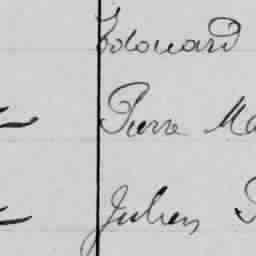 Edouard
Pierre Ma
Julien